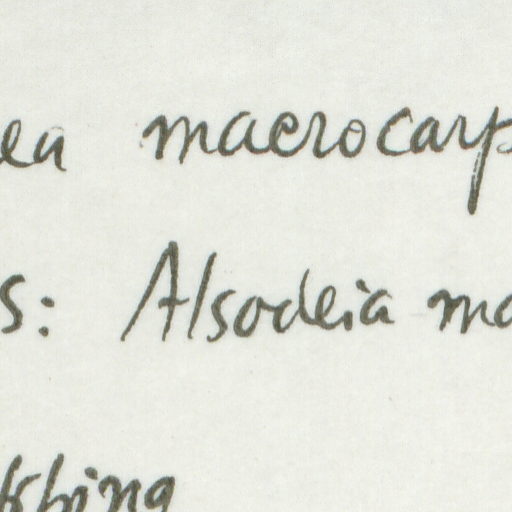 ea macrocarp
s: Alsodeia ma